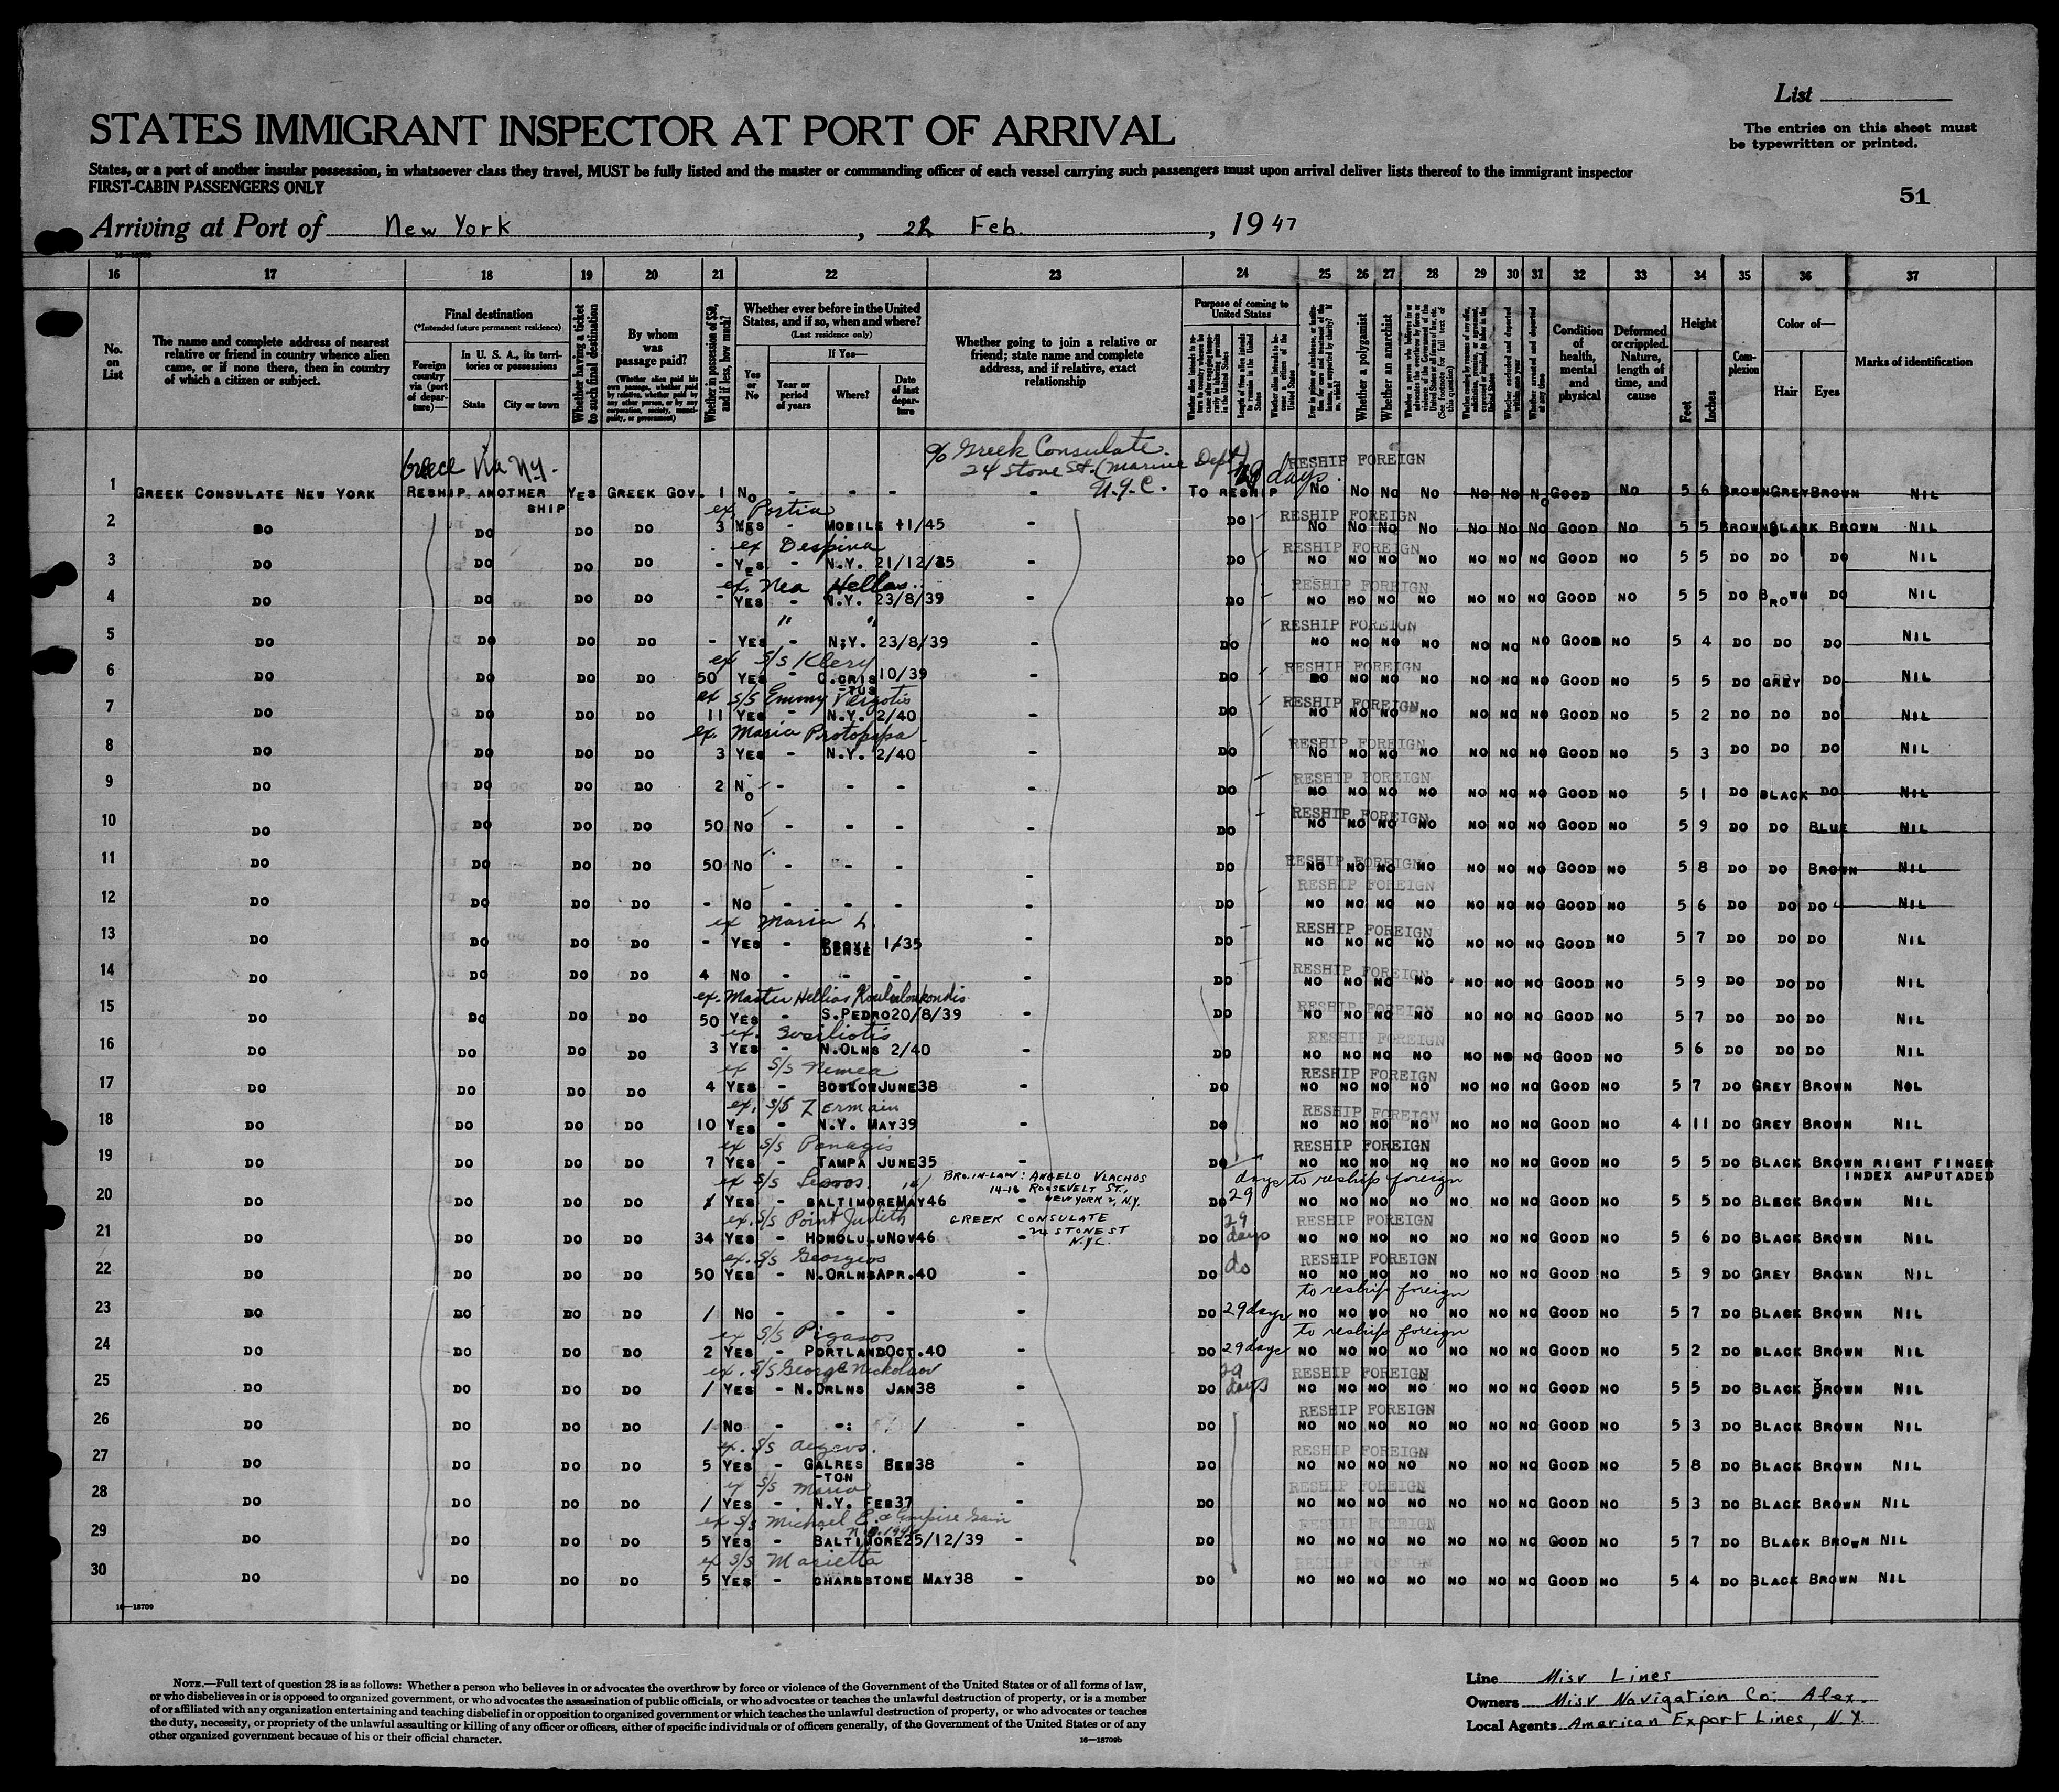 List
The entries on this sheet must
be typewritten or printed.
STATES IMMIGRANT INSPECTOR AT PORT OF ARRIVAL
States, or a port of another insular possession, in whatsoever class they travel, MUST be fully listed and the master or commanding officer of each vessel carrying such passengers must upon arrival deliver lists thereof to the immigrant inspector
FIRST-CABIN PASSENGERS ONLY
51
Arriving at Port of New York, 22 Feb. , 1947
16 17 18 19 20 21 22 23 24 25 26 27 28 29 30 31 32 33 34 35 36 37
No. on List
The name and complete address of nearest relative or friend in country whence alien came, or if none there, then in country of which a citizen or subject.
Final destination
(*Intended future permanent residence)
Foreign country via (port of departure)—
In U. S. A., its territories or possessions
State
City or town
Whether having a ticket to such final destination
By whom was passage paid?
(Whether alien paid his own passage, whether paid by relative, whether paid by any other person, or by any corporation, society, municipality, or government)
Whether in possession of $50, and if less, how much?
Whether ever before in the United States, and if so, when and where?
(Last residence only)
Yes or No
If Yes—
Year or period of years
Where?
Date of last departure
Whether going to join a relative or friend; state name and complete address, and if relative, exact relationship
Purpose of coming to United States
Length of time alien intends to remain in the United States
Whether a polygamist
Whether an anarchist
Condition of health, mental and physical
Deformed or crippled. Nature, length of time, and cause
Height
Feet
Inches
Complexion
Color of—
Hair
Eyes
Marks of identification
Greece via N.Y. % Greek Consulate.
24 Stone St. (Marine Dept) 29 days RESHIP FOREIGN
1 GREEK CONSULATE NEW YORK RESHIP ANOTHER SHIP YES GREEK GOV. 1 NO - - - - TO RESHIP NO NO NO NO NO NO NO GOOD NO 5 6 BROWN GREY BROWN NIL
ex Portia RESHIP FOREIGN
2 DO DO DO DO 3 YES - MOBILE 11/45 - DO NO NO NO NO NO NO NO GOOD NO 5 5 BROWN BLACK BROWN NIL
ex Despina RESHIP FOREIGN
3 DO DO DO DO - YES - N.Y. 21/12/35 - DO NO NO NO NO NO NO NO GOOD NO 5 5 DO DO DO NIL
ex. Nea Hellas RESHIP FOREIGN
4 DO DO DO DO - YES - N.Y. 23/8/39 - DO NO NO NO NO NO NO NO GOOD NO 5 5 DO BROWN DO NIL
" " RESHIP FOREIGN
5 DO DO DO DO - YES - N.Y. 23/8/39 - DO NO NO NO NO NO NO NO GOOD NO 5 4 DO DO DO NIL
ex S/S Klery RESHIP FOREIGN
6 DO DO DO DO 50 YES - C.CRISTUS 10/39 DO DO NO NO NO NO NO NO GOOD NO 5 5 DO GREY DO NIL
ex S/S Emmy Vergotis RESHIP FOREIGN
7 DO DO DO DO 11 YES - N.Y. 2/40 - DO NO NO NO NO NO NO NO GOOD NO 5 2 DO DO DO NIL
ex. Maria Protopapa RESHIP FOREIGN
8 DO DO DO DO 3 YES - N.Y. 2/40 - DO NO NO NO NO NO NO NO GOOD NO 5 3 DO DO DO NIL
RESHIP FOREIGN
9 DO DO DO DO 2 NO - - - - DO NO NO NO NO NO NO NO GOOD NO 5 1 DO BLACK DO NIL
RESHIP FOREIGN
10 DO DO DO DO 50 NO - - - - DO NO NO NO NO NO NO NO GOOD NO 5 9 DO DO BLUE NIL
RESHIP FOREIGN
11 DO DO DO DO 50 NO - - - - DO NO NO NO NO NO NO NO GOOD NO 5 8 DO DO BROWN NIL
RESHIP FOREIGN
12 DO DO DO DO - NO - - - - DO NO NO NO NO NO NO NO GOOD NO 5 6 DO DO DO NIL
ex Maria L. RESHIP FOREIGN
13 DO DO DO DO - YES - 1/35 - DO NO NO NO NO NO NO NO GOOD NO 5 7 DO DO DO NIL
RESHIP FOREIGN
14 DO DO DO DO 4 NO - - - - DO NO NO NO NO NO NO NO GOOD NO 5 9 DO DO DO NIL
ex. Master Hellias Kouloukondis RESHIP FOREIGN
15 DO DO DO DO 50 YES - S.PEDRO 20/8/39 - DO NO NO NO NO NO NO NO GOOD NO 5 7 DO DO DO NIL
ex. RESHIP FOREIGN
16 DO DO DO DO 3 YES - N.OLNS 2/40 - DO NO NO NO NO NO NO NO GOOD NO 5 6 DO DO DO NIL
ex S/S Nemea RESHIP FOREIGN
17 DO DO DO DO 4 YES - BOSTON JUNE38 - DO NO NO NO NO NO NO NO GOOD NO 5 7 DO GREY BROWN NOL
ex. S/S Zermain RESHIP FOREIGN
18 DO DO DO DO 10 YES - N.Y. MAY39 - DO NO NO NO NO NO NO NO GOOD NO 4 11 DO GREY BROWN NIL
ex S/S Panagis RESHIP FOREIGN
19 DO DO DO DO 7 YES - TAMPA JUNE35 - DO NO NO NO NO NO NO NO GOOD NO 5 5 DO BLACK BROWN RIGHT FINGER INDEX AMPUTADED
ex S/S BRO.IN-LAW: ANGELO VLACHOS 14-16 ROOSEVELT ST., NEW YORK 2, N.Y. days to reship foreign
20 DO DO DO DO 1 YES - BALTIMORE MAY46 DO 29 NO NO NO NO NO NO NO GOOD NO 5 5 DO BLECK BROWN NIL
ex. S/S Point Judith GREEK CONSULATE 24 STONE ST N.Y.C. 29 days RESHIP FOREIGN
21 DO DO DO DO 34 YES - HONOLULU NOV46 - DO NO NO NO NO NO NO NO GOOD NO 5 6 DO BLACK BROWN NIL
ex. S/S Georgeos do RESHIP FOREIGN
22 DO DO DO DO 50 YES - N.ORLNS APR.40 - DO NO NO NO NO NO NO NO GOOD NO 5 9 DO GREY BROWN NIL
to reship foreign
23 DO DO DO DO 1 NO - - - - DO 29 days NO NO NO NO NO NO NO GOOD NO 5 7 DO BLACK BROWN NIL
ex S/S Pigasos to reship foreign
24 DO DO DO DO 2 YES - PORTLAND OCT.40 - DO 29 days NO NO NO NO NO NO NO GOOD NO 5 2 DO BLACK BROWN NIL
ex. S/S George Nickolaov 29 days RESHIP FOREIGN
25 DO DO DO DO 1 YES - N.ORLNS JAN38 - DO NO NO NO NO NO NO NO GOOD NO 5 5 DO BLACK BROWN NIL
RESHIP FOREIGN
26 DO DO DO DO 1 NO - -: / - DO NO NO NO NO NO NO NO GOOD NO 5 3 DO BLACK BROWN NIL
ex. S/S Aegeus. RESHIP FOREIGN
27 DO DO DO DO 5 YES - GALRES-TON FEB38 - DO NO NO NO NO NO NO NO GOOD NO 5 8 DO BLACK BROWN NIL
ex S/S Maria RESHIP FOREIGN
28 DO DO DO DO 1 YES - N.Y. FEB37 - DO NO NO NO NO NO NO NO GOOD NO 5 3 DO BLACK BROWN NIL
ex S/S Michael E. RESHIP FOREIGN
29 DO DO DO DO 5 YES - BALTIMORE 25/12/39 - DO NO NO NO NO NO NO NO GOOD NO 5 7 BLACK BROWN NIL
ex S/S Marietta RESHIP FOREIGN
30 DO DO DO DO 5 YES - CHARESTONE MAY38 - DO NO NO NO NO NO NO NO GOOD NO 5 4 DO BLACK BROWN NIL
16—18709
NOTE.—Full text of question 28 is as follows: Whether a person who believes in or advocates the overthrow by force or violence of the Government of the United States or of all forms of law,
or who disbelieves in or is opposed to organized government, or who advocates the assassination of public officials, or who advocates or teaches the unlawful destruction of property, or is a member
of or affiliated with any organization entertaining and teaching disbelief in or opposition to organized government or which teaches the unlawful destruction of property, or who advocates or teaches
the duty, necessity, or propriety of the unlawful assaulting or killing of any officer or officers, either of specific individuals or of officers generally, of the Government of the United States or of any
other organized government because of his or their official character.
16—18709b
Line Misr Lines
Owners Misr Navigation Co: Alex.
Local Agents American Export Lines, N.Y.